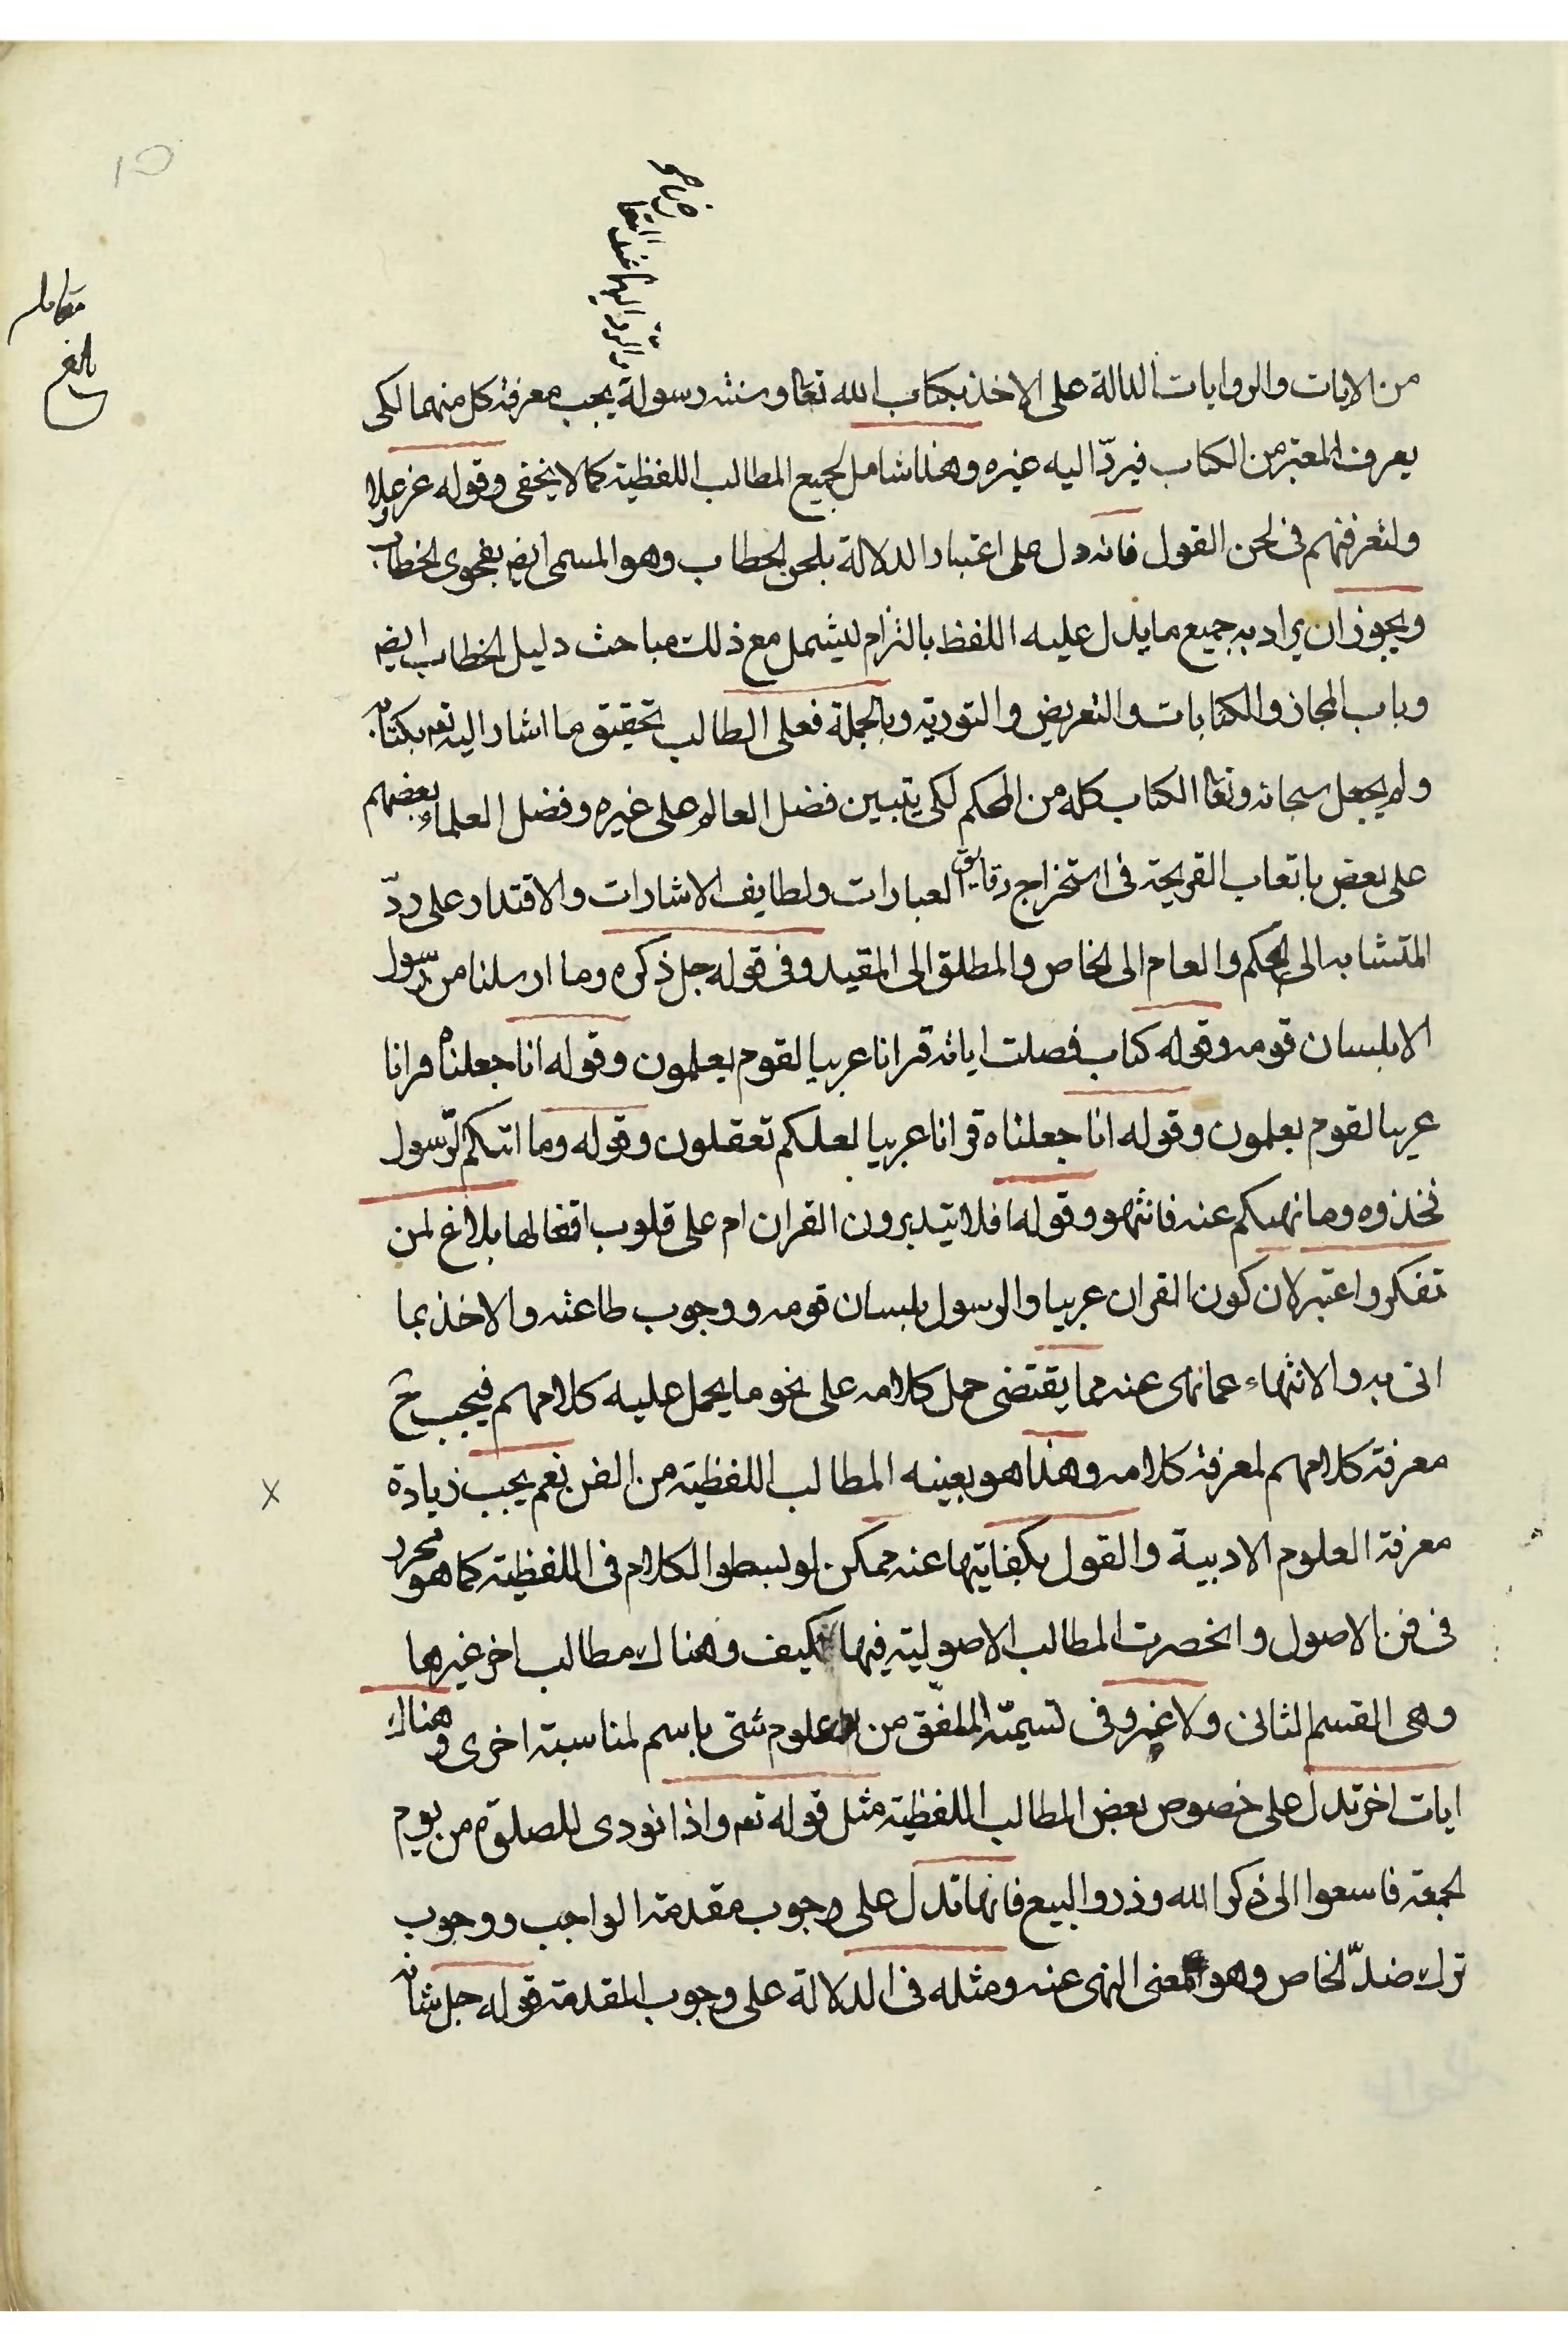 من الايات والروايات الدالة على الاخذ بكتاب الله تعا وسنته رسوله يجب معرفة كل منهما لكى
يعرف المعتبر من الكتاب فيردّ اليه غيره وهذا شامل لجميع المطالب اللفظية كما لا يخفى وقوله عز وعلا
ولتعرفنهم فى لحن القول فانه دل على اعتبار الدلالة بلحن الخطاب وهو المسمى ايض بفحوى الخطاب
ويجوز ان يراد به جميع ما يدل عليه اللفظ بالتزام ليشمل مع ذلك مباحث دليل الخطاب ايض
وباب المجاز والكنايات والتعريض والتورية وبالجملة فعلى الطالب تحقيق ما اشار اليه تعه بكتابه
ولم يجعل سبحانه وتعا الكتاب كله من المحكم لكى يتبين فضل العالم على غيره وفضل العلماء بعضهم
على بعض باتعاب القريحة فى استخراج دقايق العبارات ولطايف الاشارات والاقتدار على ردّ
المتشابه الى المحكم والعام الى الخاص والمطلق الى المقيد وفى قوله جل ذكره وما ارسلنا من رسول
الا بلسان قومه وقوله كتاب فصلت اياته قرانا عربيا لقوم يعلمون وقوله انا جعلناه قرانا
عربيا لقوم يعلمون وقوله انا جعلناه قرانا عربيا لعلكم تعقلون وقوله وما اتيكم الرّسول
فخذوه وما نهيكم عنه فانتهو وقوله افلا يتدبرون القران ام على قلوب اقفالها بلاغ لمن
تفكر واعتبر لان كون القران عربيا والرسول بلسان قومه ووجوب طاعته والاخذ بما
اتى به والانتهاء عما نهى عنه مما يقتضى حمل كلامه على نحو ما يحمل عليه كلامهم فيجب ح
معرفة كلامهم لمعرفة كلامه وهذا هو بعينه المطالب اللفظية من الفن نعم يجب زيادة
معرفة العلوم الادبية والقول بكفايتها عنه ممكن لو لم يبسطوا الكلام فى اللفظية كما هو محرر
فى فن الاصول وانحصرت المطالب الاصولية فيها فكيف وهناك مطالب اخر غيرها
وهى القسم الثانى ولا غرو فى تسمية الملفق من علوم شتى باسم لمناسبة اخرى وهناك
ايات اخر تدل على خصوص بعض المطالب اللفظية مثل قوله تعه واذا نودى للصلوة من يوم
الجمعة فاسعوا الى ذكر الله وذروا البيع فانها تدل على وجوب مقدمة الواجب ووجوب
ترك ضدّ الخاص وهو المعنى النهى عنه ومثله فى الدلالة على وجوب المقدمة قوله جل شانه